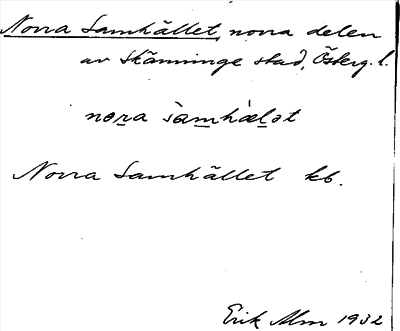 Norra Samhället, norra delen
av Skänninge stad, Österg. l.
nor̲a sam̲hæl̲ət
Norra Samhället kb.
Erik Alm 1932